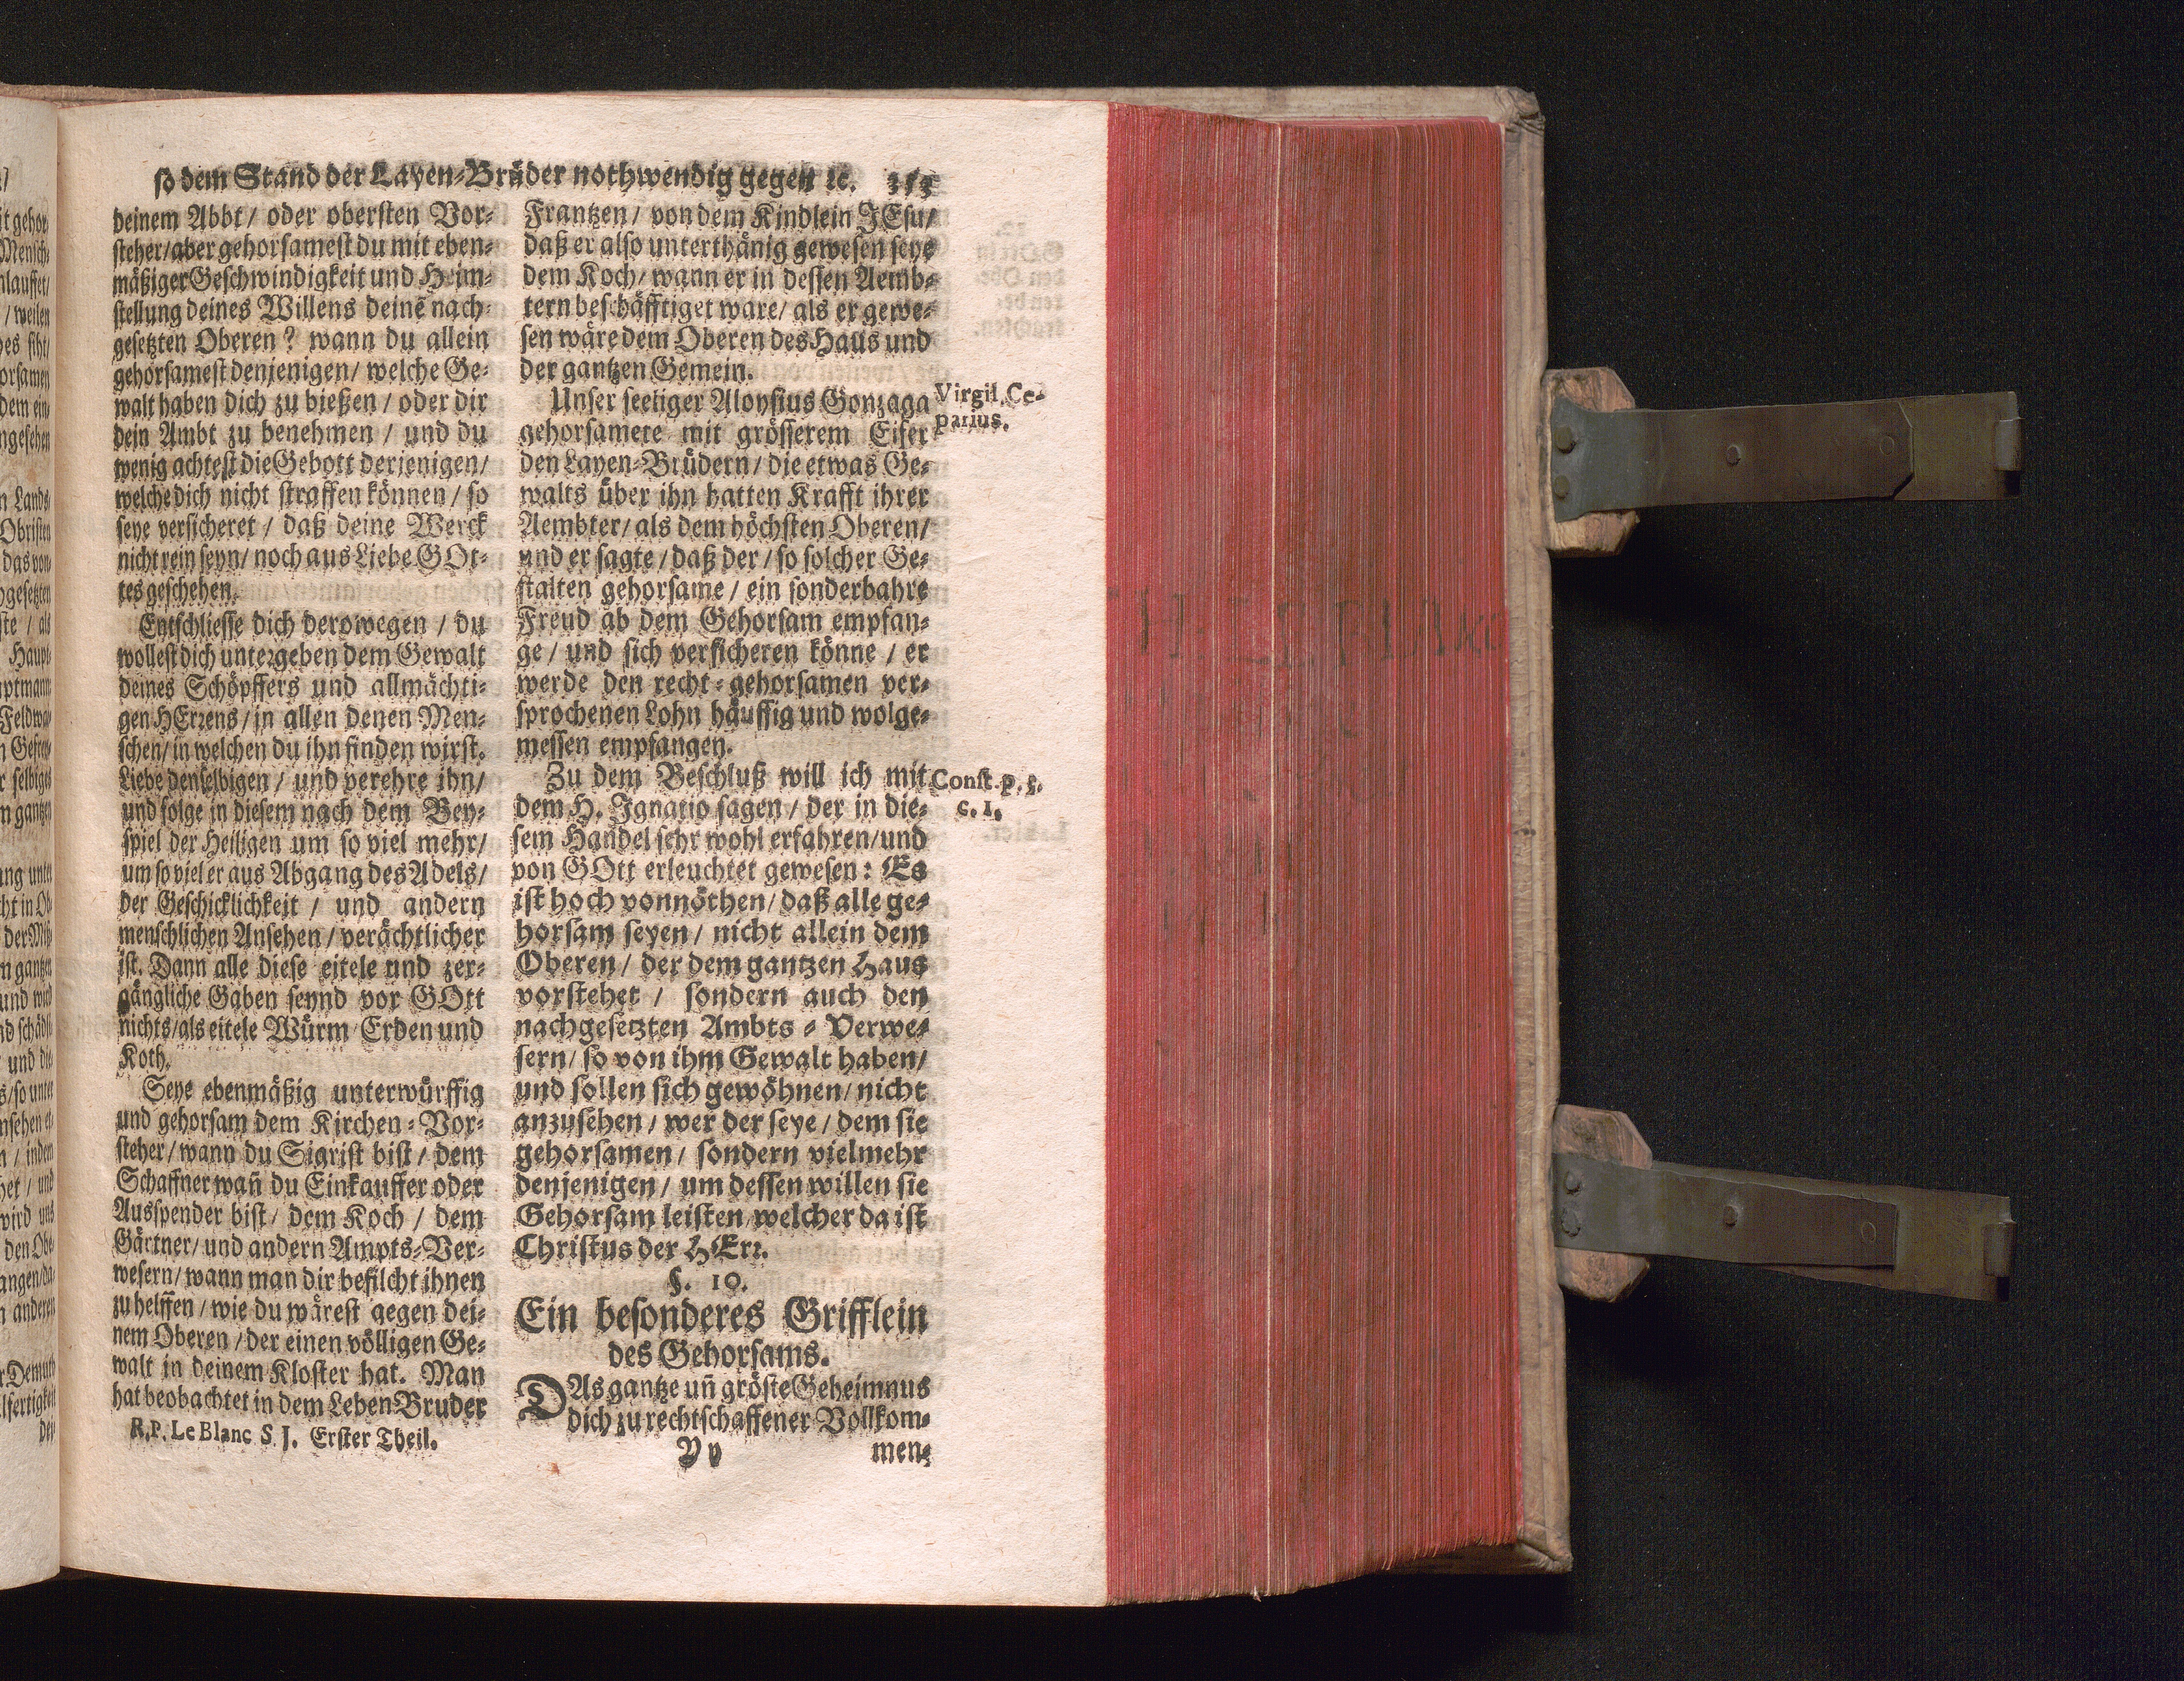 so dem Stand der Layen-Brüder nothwendig gegen ꝛc.
deinem Abbt / oder obersten Vor-
steher / aber gehorsamest du mit eben-
mäßiger Geschwindigkeit und Heim-
stellung deines Willens deinē nach-
gesetzten Oberen? wann du allein
gehorsamest denjenigen / welche Ge-
walt haben dich zu bießen / oder dir
dein Ambt zu benehmen / und du
wenig achtest die Gebott derjenigen /
welche dich nicht straffen können / so
seye versicheret / daß deine Werck
nicht rein seyn / noch aus Liebe GOt-
tes geschehen.
Entschliesse dich derowegen / du
wollest dich untergeben dem Gewalt
deines Schöpffers und allmächti-
gen HErrens / in allen denen Men-
schen / in welchen du ihn finden wirst.
Liebe denselbigen / und verehre ihn /
und folge in diesem nach dem Bey-
spiel der Heiligen um so viel mehr /
um so viel er aus Abgang des Adels /
der Geschicklichkeit / und andern
menschlichen Ansehen / verächtlicher
ist. Dann alle diese eitele und zer-
gängliche Gaben seynd vor GOtt
nichts / als eitele Würm / Erden und
Koth.
Seye ebenmäßig unterwürffig
und gehorsam dem Kirchen-Vor-
steher / wann du Sigrist bist / dem
Schaffner wañ du Einkauffer oder
Ausspender bist / dem Koch / dem
Gärtner / und andern Ampts-Ver-
wesern / wann man dir befilcht ihnen
zu helffen / wie du wärest gegen dei-
nem Oberen / der einen völligen Ge-
walt in deinem Kloster hat. Man
hat beobachtet in dem Leben Bruder
R. P. Le Blanc S. J. Erster Theil.
Frantzen / von dem Kindlein JEsu /
daß er also unterthänig gewesen seye
dem Koch / wann er in dessen Aemb-
tern beschäfftiget ware / als er gewe-
sen wäre dem Oberen des Haus und
der gantzen Gemein.
Unser seeliger Aloysius Gonzaga
gehorsamete mit grösserem Eifer
den Layen-Brüdern / die etwas Ge-
walts über ihn hatten Krafft ihrer
Aembter / als dem höchsten Oberen /
und er sagte / daß der / so solcher Ge-
stalten gehorsame / ein sonderbahre
Freud ab dem Gehorsam empfan-
ge / und sich versicheren könne / er
werde den recht-gehorsamen ver-
sprochenen Lohn häuffig und wolge-
messen empfangen.
Zu dem Beschluß will ich mit
dem H. Ignatio sagen / der in die-
sem Handel sehr wohl erfahren / und
von GOtt erleuchtet gewesen: Es
ist hoch vonnöthen / daß alle ge-
horsam seyen / nicht allein dem
Oberen / der dem gantzen Haus
vorstehet / sondern auch den
nachgesetzten Ambts-Verwe-
sern / so von ihm Gewalt haben /
und sollen sich gewöhnen / nicht
anzusehen / wer der seye / dem sie
gehorsamen / sondern vielmehr
denjenigen / um dessen willen sie
Gehorsam leisten / welcher da ist
Christus der HErr.
§. 10.
Ein besonderes Grifflein
des Gehorsams.
DAs gantze uñ gröste Geheimnus
dich zu rechtschaffener Vollkom-
Yy men-
Virgil. Ce-
parius.
Const. p. 5.
c. 1.